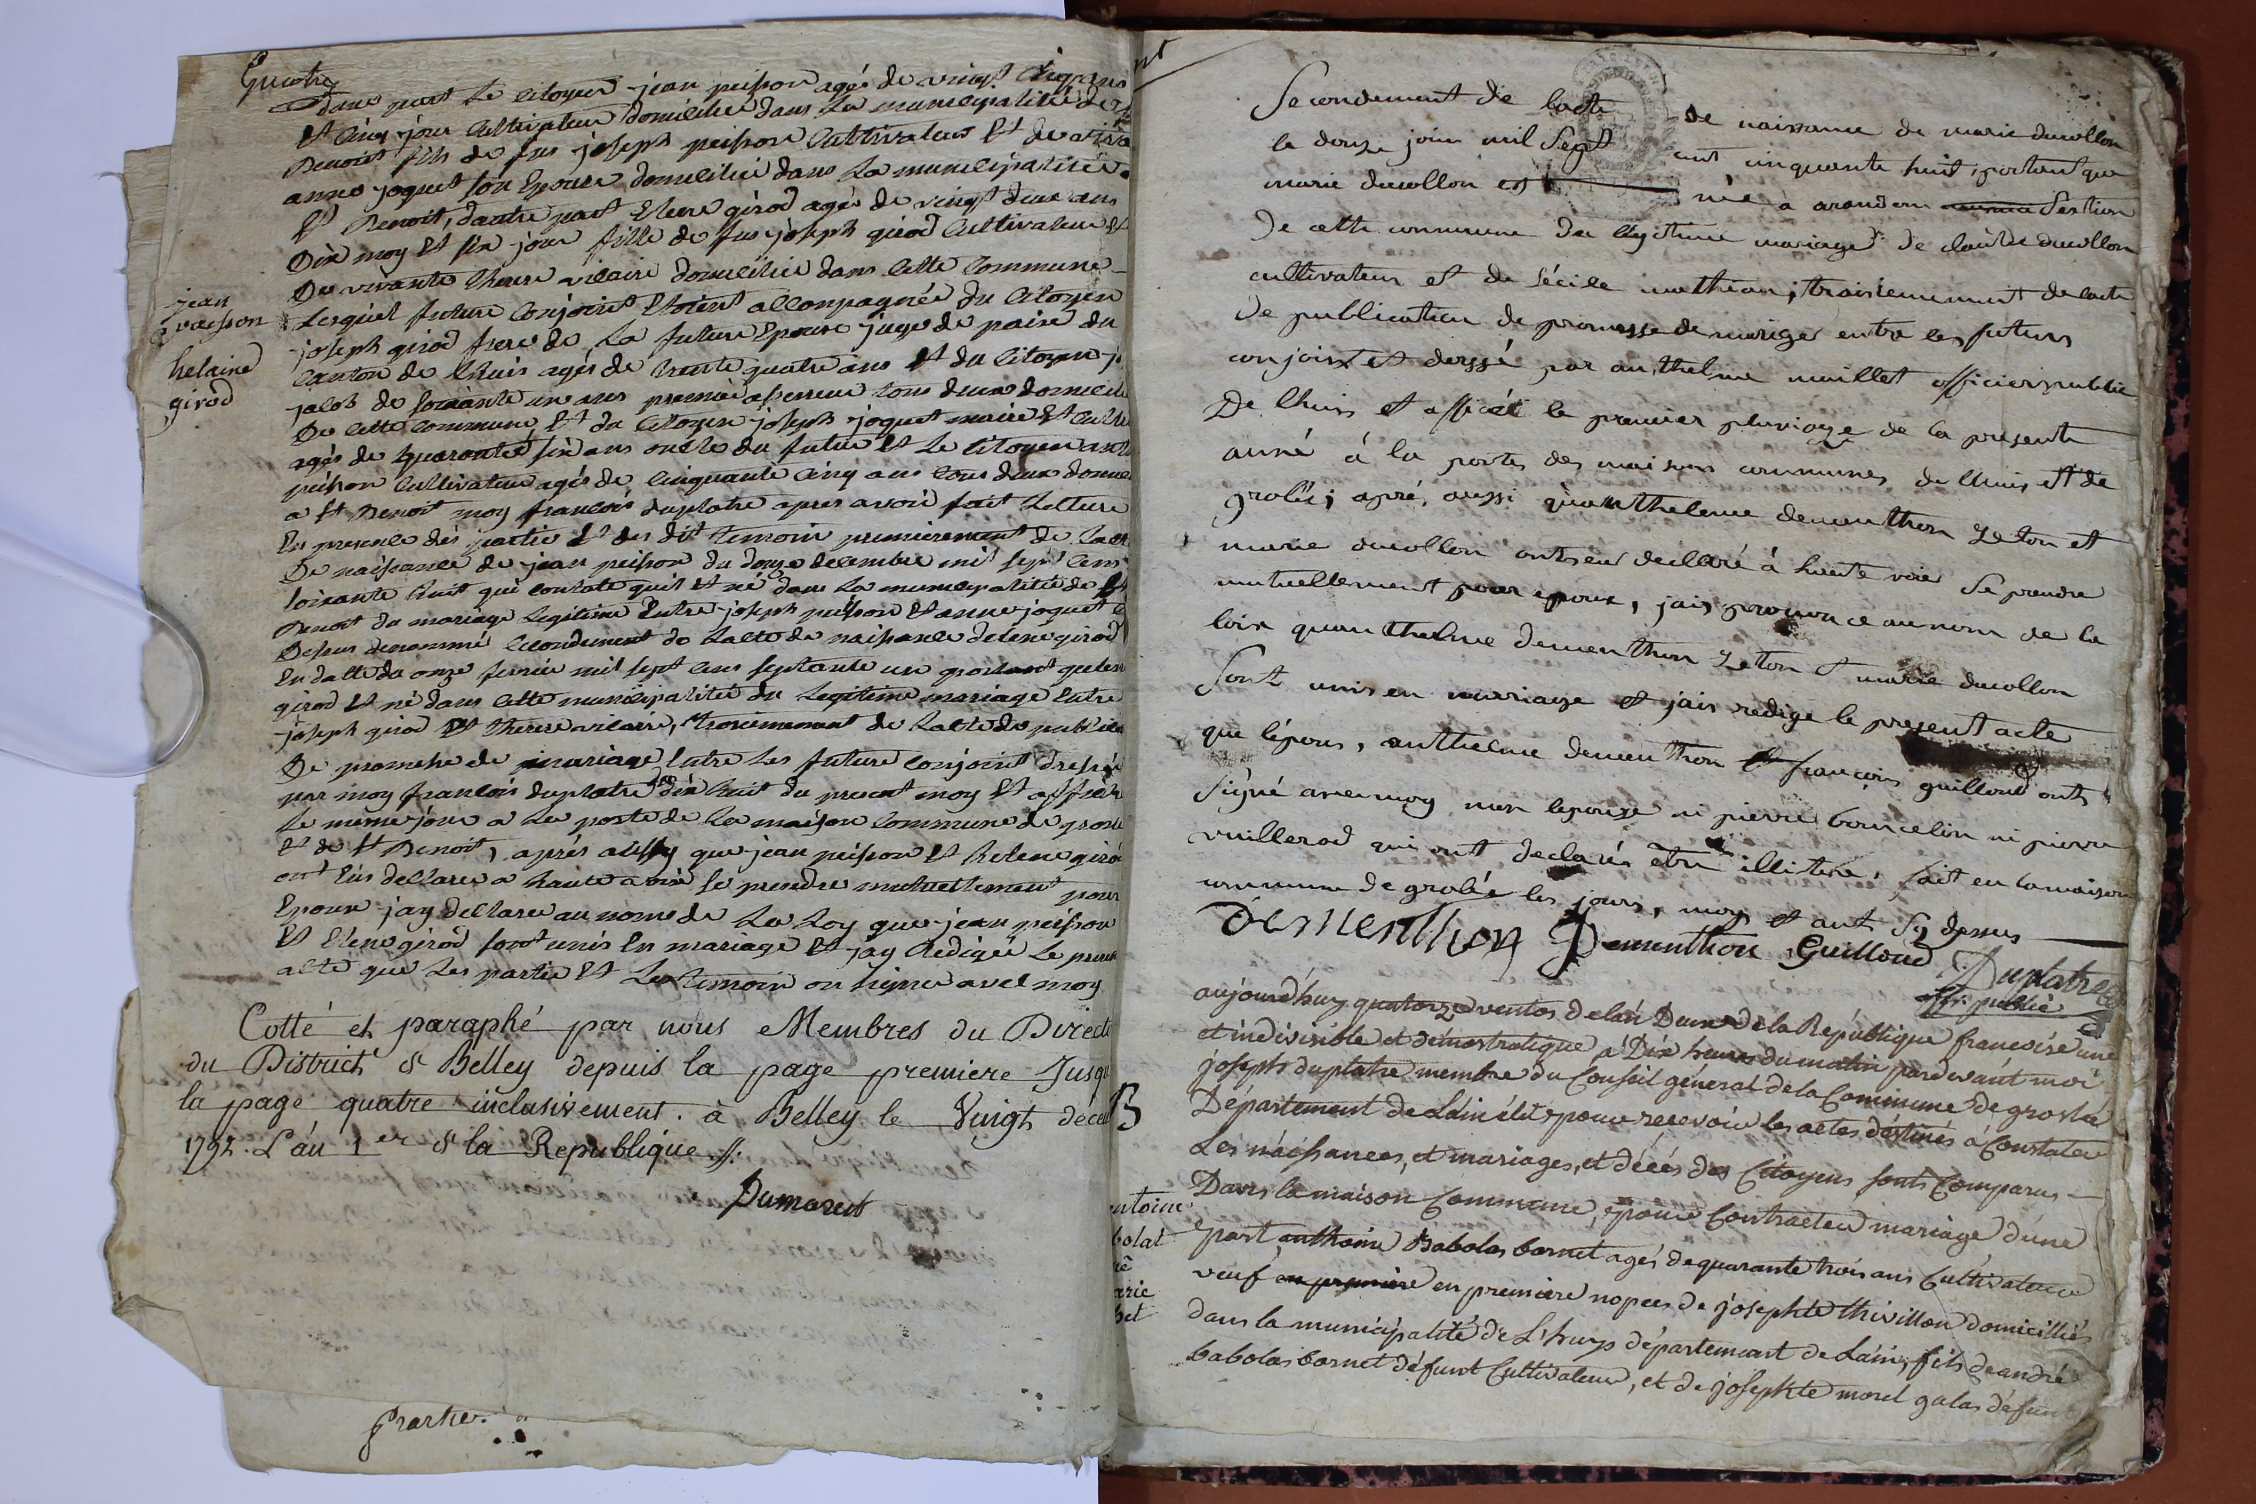 Quatre
Dune part Le Citoyen jean peisson agés de vingt cinq ans
Et Cinq jour Cultivateur domicilié dans La municipalité de St
Benoist fils de feu joseph peisson Cultivateur Et de
anne joquet son Epouse domicilié dans La municipalitée
St Benoit, dautre part Elene girod agés de vingt deux ans
Dix moy Et six jour fille de feu joseph girod Cultivateur Et
De vivante therese vilaire domicilié dans Cette Commune
Lesquel future Conjoint Etoient accompagnée du Citoyen
joseph girod frere de La future Epouse juge de paixe du
Canton de Lhuis agés de trante quatre ans Et du Citoyen
jacob de soixante un ans premié assesseur tous deux domicilié
De Cette Commune Et du Citoyen joseph joquet maire Et
agés de quarante six ans oncle du futur Et Le Citoyen
peisson Cultivateur agés de Cinquante Cinq ans tous deux domicilié
a St Benoit moy francois duplatre apres avoir fait Lecture
En presence des partie Et des dit temoin premierement de Lacte
De naissance de jean peisson du douze decembre mil sept Cens
soixante huit qui constate quil Et né dans La municipalitée de St
Benoit du mariage Legitime Entre joseph peisson Et anne joquet
Dessus denommé secondement de Lacte de naissance delene girod
En datte du onze fevrié mil sept Cens septante un portant quelene
girod Et né dans Cette municipalitée du Legitime mariage Entre
joseph girod Et therese vilaire, troisiemement de Lacte de publication
De promesse de mariage Entre Les future Conjoint dressée
par moy francois duplatre Le dix huit du present moy Et affiché
Le meme jour a La porte de La maison Commune de groslé
Et de St Benoit, aprés aussy que jean peisson Et helene girod
ont Eus declaré a haute voix se prendre mutuellement pour
Epoux jay declaré au nom de La Loy que jean peisson
Et Elene girod sont unis En mariage Et jay Rédigée Le present
acte que Les partie Et Les temoin on signer avec moy
jean
peisson
helaine
girod
Cotté et paraphé par nous Membres du Directoi
du District de Belley depuis la page premiere Jusqu
la page quatre inclusivement. à Belley le Vingt décem
1792. L'an 1er de la République.
Dumarest
Secondement de lacte de naissance de marie ducollon
le douze join mil Sept cent cinquante huit, portant que
marie ducollon est née a arandon Section
De cette commune du legitime mariage de claude ducollon
cultivateur et de sécile mathian; troisiemement de lacte
De publication de promesse de mariage entre les futurs
conjoint et dressé par anthelme maillet officier public
De lhuis et affiché le premier pluviose de la presente
anné à la portes des maisons communes de lhuis et de
grolée; apré, aussi quanthelme dementhon Zeton et
marie ducollon onts eu declaré à haute voie Se prendre
mutuellement pour epoux, jais prononcé au nom de la
loix quanthelme dementhon Zeton et marie ducollon
Sont unis en marriage et jais redige le present acte
que lépous, anthelme dementhon françois guilloud onts
Signé avec moy non lepouse ni pierre boncelin ni pierre
vuillerod qui ont declarés etre illiteré, fait en la maison
commune de grolée les jours, moys et ants Sy dessus
Dementhon Dementhon Guilloud Duplatre
offi. public
aujourd'huy quatorze ventos de lan Deux de la République francoise une
et indivisible et démocratique à Dix heures du matin pardevant moi
joseph duplatre membre du Conseil général de la Commune de groslée
Département de Lain élû pour recevoir les actes déstinés à Constater
Les naissances, et mariages, et décés des Citoyens sonts Comparus
Dans la maison Commune, pour Contracter mariage d'une
part anthoine Babolas bornet agés de quarante trois ans Cultivateur
veuf en premiere en premiere nopces de josephte thivillon domiciliés
dans la municipalité de Lhuys département de Lain, fils de andré
babolas bornet défunt Cultivateur, et de josephte morel galas défunt
ntoine
bolat
arie
Partie.